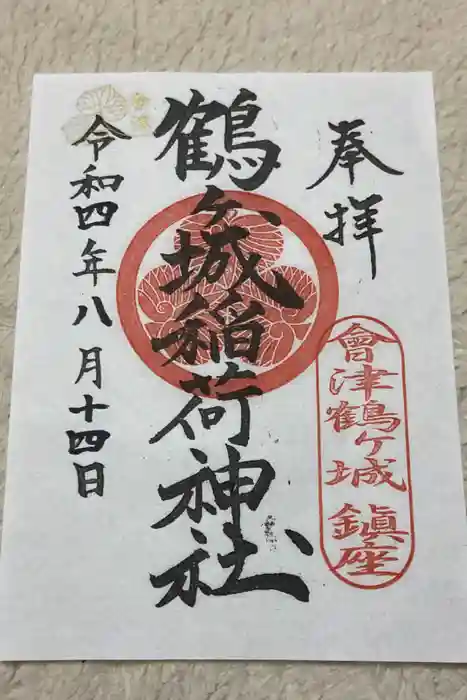 奉拝
會津鶴ヶ城鎮座
鶴ヶ城稲荷神社
令和四年八月十四日